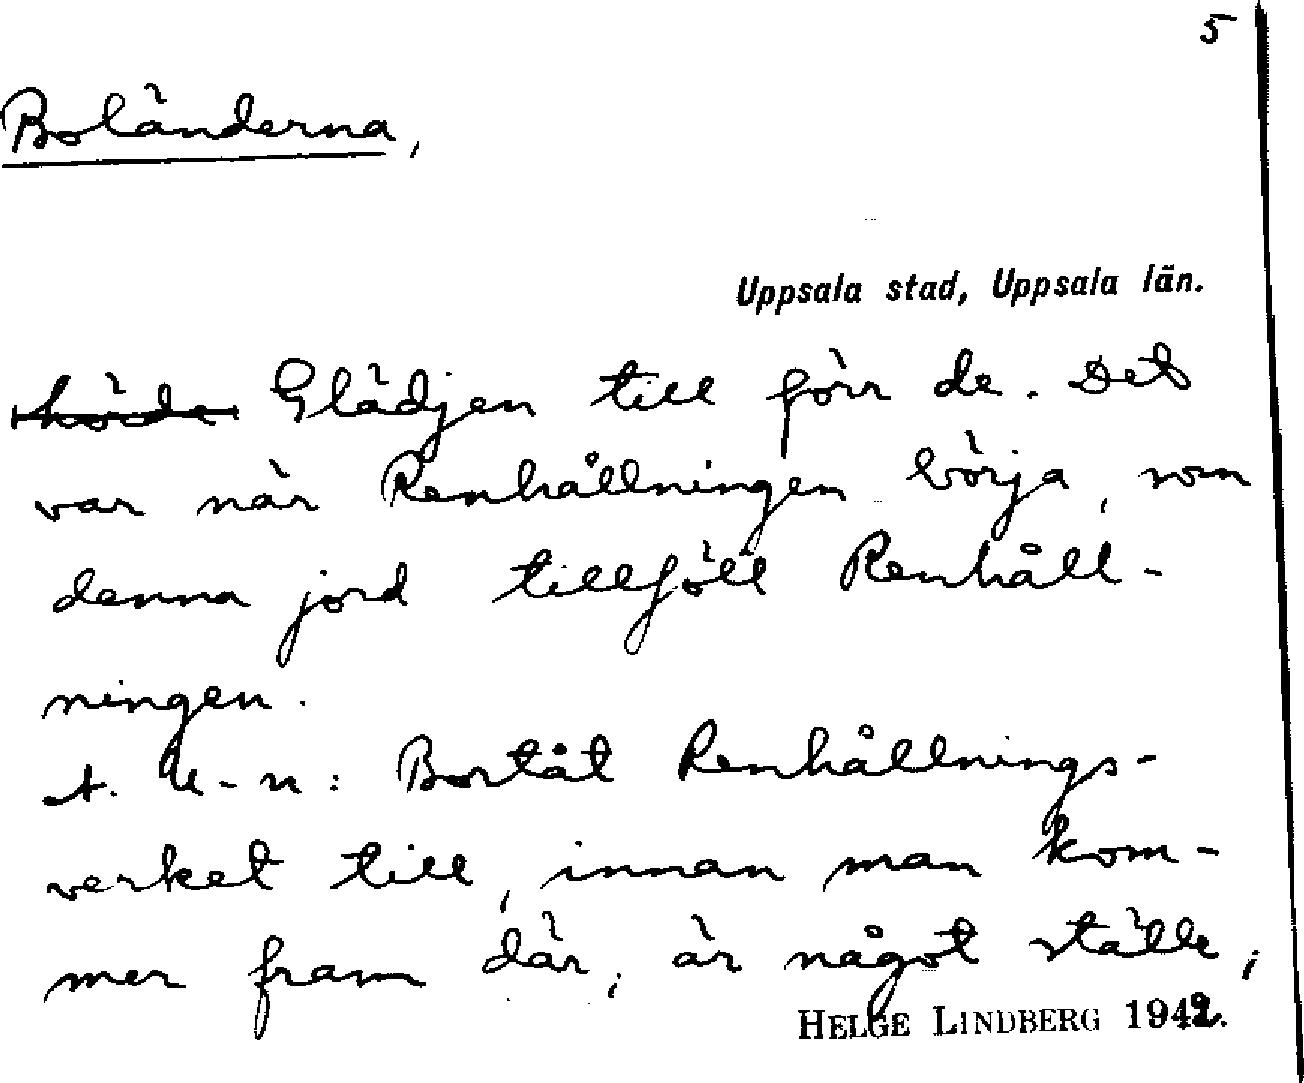 5
Boländerna,
Uppsala stad, Uppsala län.
hörde Glädjen till förr de. Det
var när Renhållningen börja, som
denna jord tillföll Renhåll-
ningen.
t. U-n: Bortåt Renhållnings-
verket till, innan man kom-
mer fram där, är något ställe,
HELGE LINDBERG 1942.